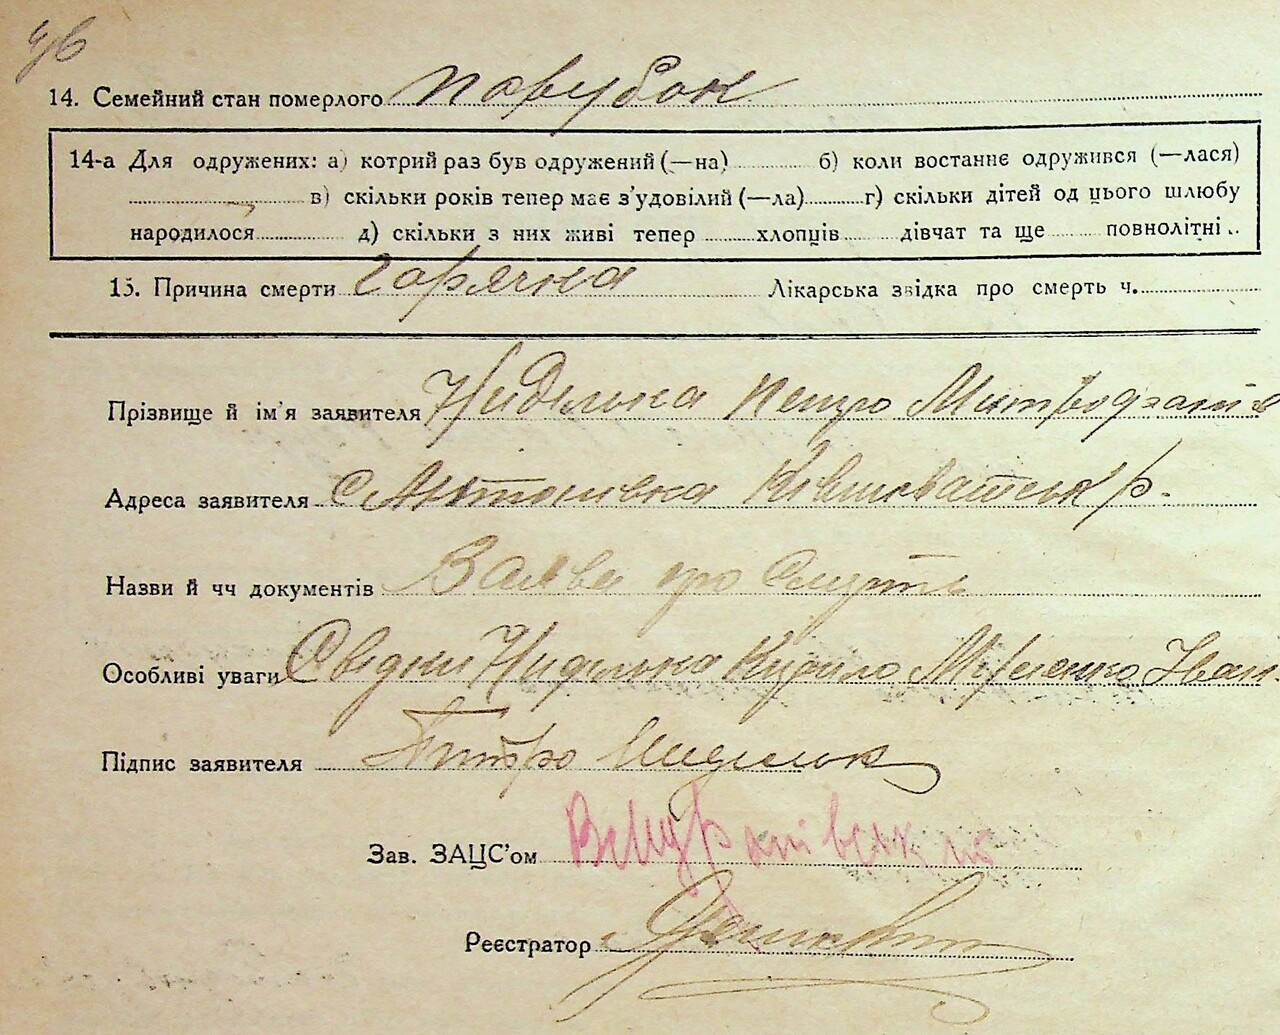 14. Семейний стан померлого парубок
14-а Для одружених: а) котрий раз був одружений (—на) б) коли востаннє одружився (—лася)
в) скільки років тепер має з'удовілий (—ла) г) скільки дітей од цього шлюбу
народилося д) скільки з них живі тепер хлопців дівчат та ще повнолітні
15. Причина смерти горячка Лікарська звідка про смерть ч.
Прізвище й ім'я заявителя Ниділька Петро
Адреса заявителя с Антонівка Ківшоватськ р.
Назви й чч документів Заява про смерть
Особливі уваги Свідки Ниділька Кирило Іван
Підпис заявителя
Зав. ЗАЦС'ом
Реєстратор